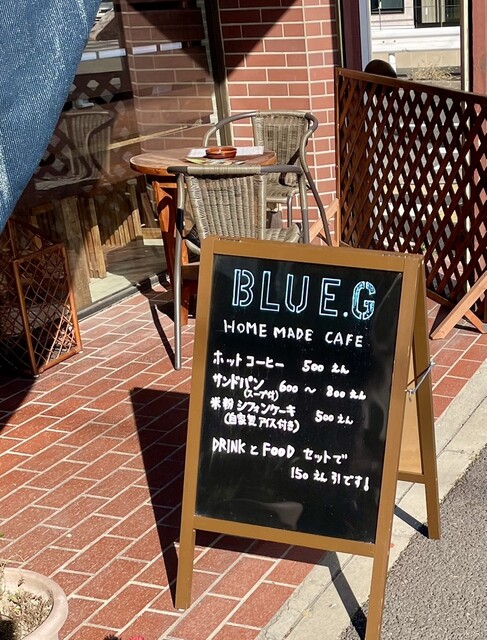 BLUE.G
HOME MADE CAFE
ホットコーヒー 500えん
サンドパン 600〜800えん
(スープ付)
米粉シフォンケーキ 500えん
(自家製アイス付き)
DRINKとFOOD セットで
150えん引です!